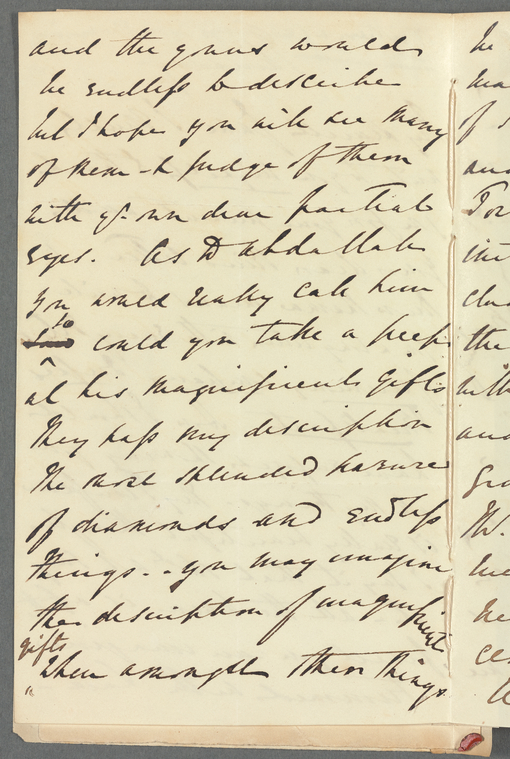 and the yours would
be endless to describe
but I hope you will see many
of them - to judge of them
with yr. own dear partial
eyes. As D Abdallah
you would really call him
so could you take a peep
at his magnificent gifts
They pass my description
the most splendid
of diamonds and endless
things - - you may imagine
the description of magnificent
gifts
when amongst these things
he
of
and
For
the
with
and
W.